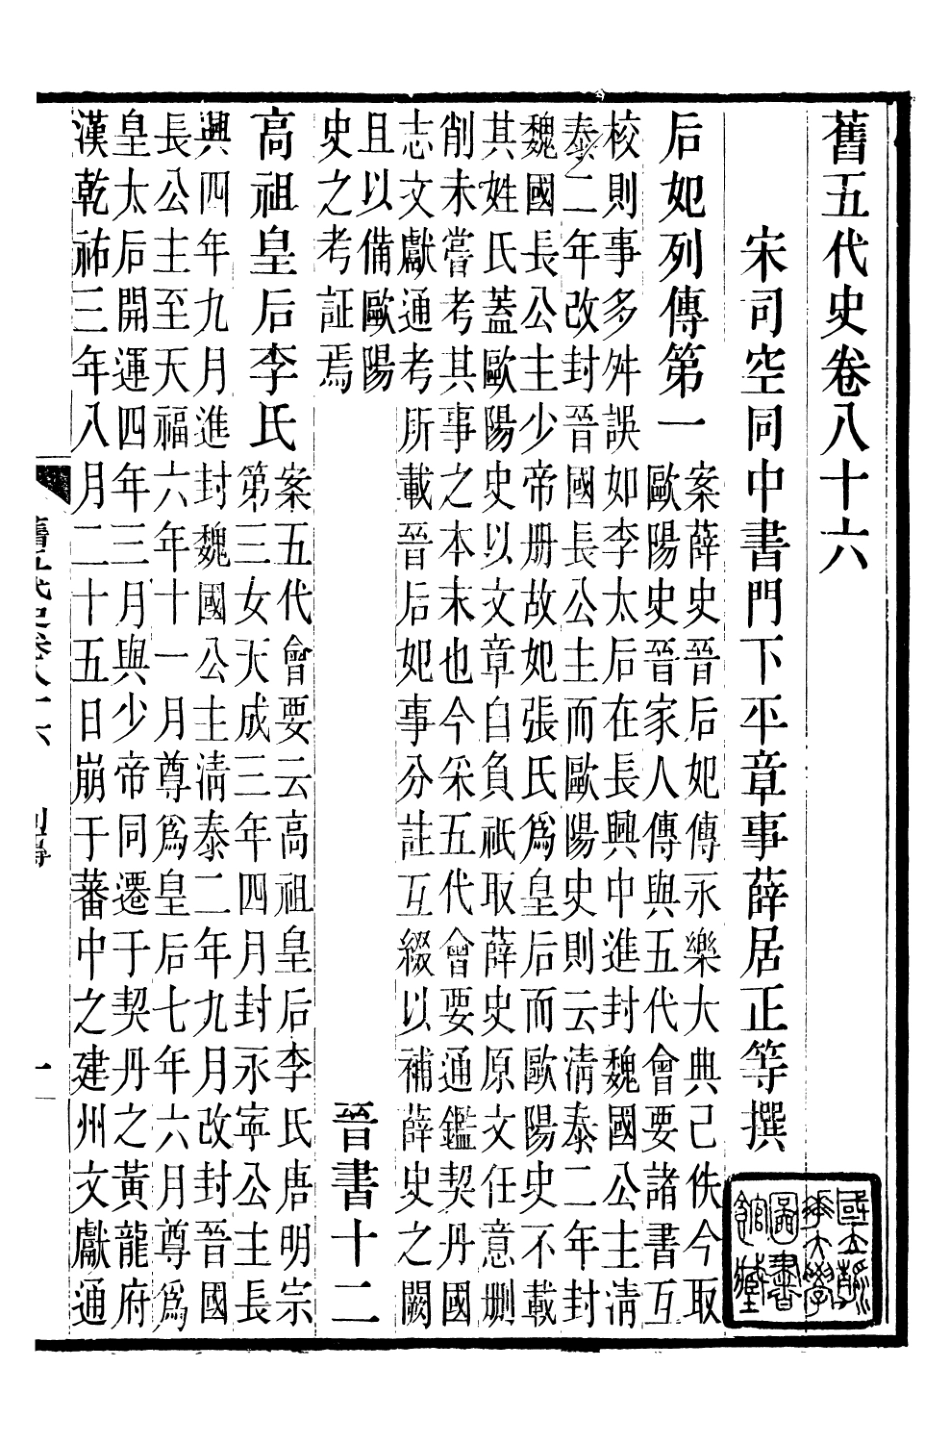 舊五代史卷八十六
宋司空同中書門下平章事薛居正等撰
后妃列傳第一
案薛史晉后妃傳永樂大典已佚今取
歐陽史晉家人傳與五代會要諸書互
校則事多舛誤如李太后在長興中進封魏國公主清
泰二年改封晉國長公主而歐陽史則云清泰二年封
魏國長公主少帝册故妃張氏爲皇后而歐陽史不載
其姓氏蓋歐陽史以文章自負祇取薛史原文任意刪
削未嘗考其事之本末也今采五代會要通鑑契丹國
志文獻通考所載晉后妃事分註互綴以補薛史之闕
且以備歐陽
史之考証焉
晉書十二
高祖皇后李氏
案五代會要云高祖皇后李氏唐明宗
第三女天成三年四月封永寧公主長
興四年九月進封魏國公主清泰二年九月改封晉國
長公主至天福六年十一月尊爲皇后七年六月尊爲
皇太后開運四年三月與少帝同遷于契丹之黃龍府
漢乾祐三年八月二十五日崩于蕃中之建州文獻通
舊五代史卷八十六 列傳 一
國立
大學
圖書
館藏